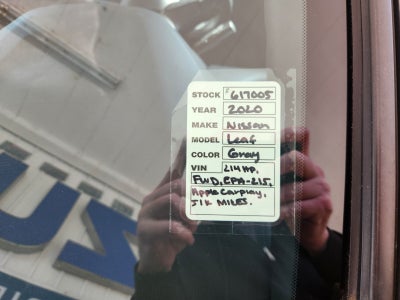 STOCK 617005
YEAR 2020
MAKE Nissan
MODEL Leaf
COLOR Gray
VIN 214 HP.
FWD, EPA-215,
Apple Carplay,
51k MILES.